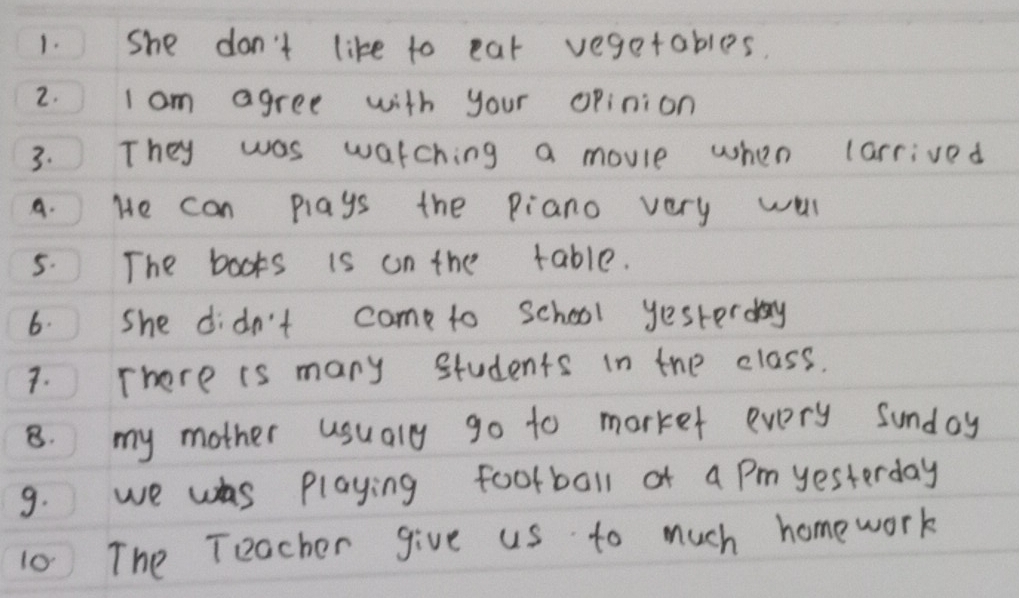 1. She don't like to eat vegetables.
2. I am agree with your opinion
3. They was watching a movie when I arrived
4. He can plays the piano very well
5. The books is on the table.
6. She didn't came to school yesterday
7. There is many students in the class.
8. my mother usualy go to market every Sunday
9. we was playing football at 4 Pm yesterday
10. The Teacher give us to much homework